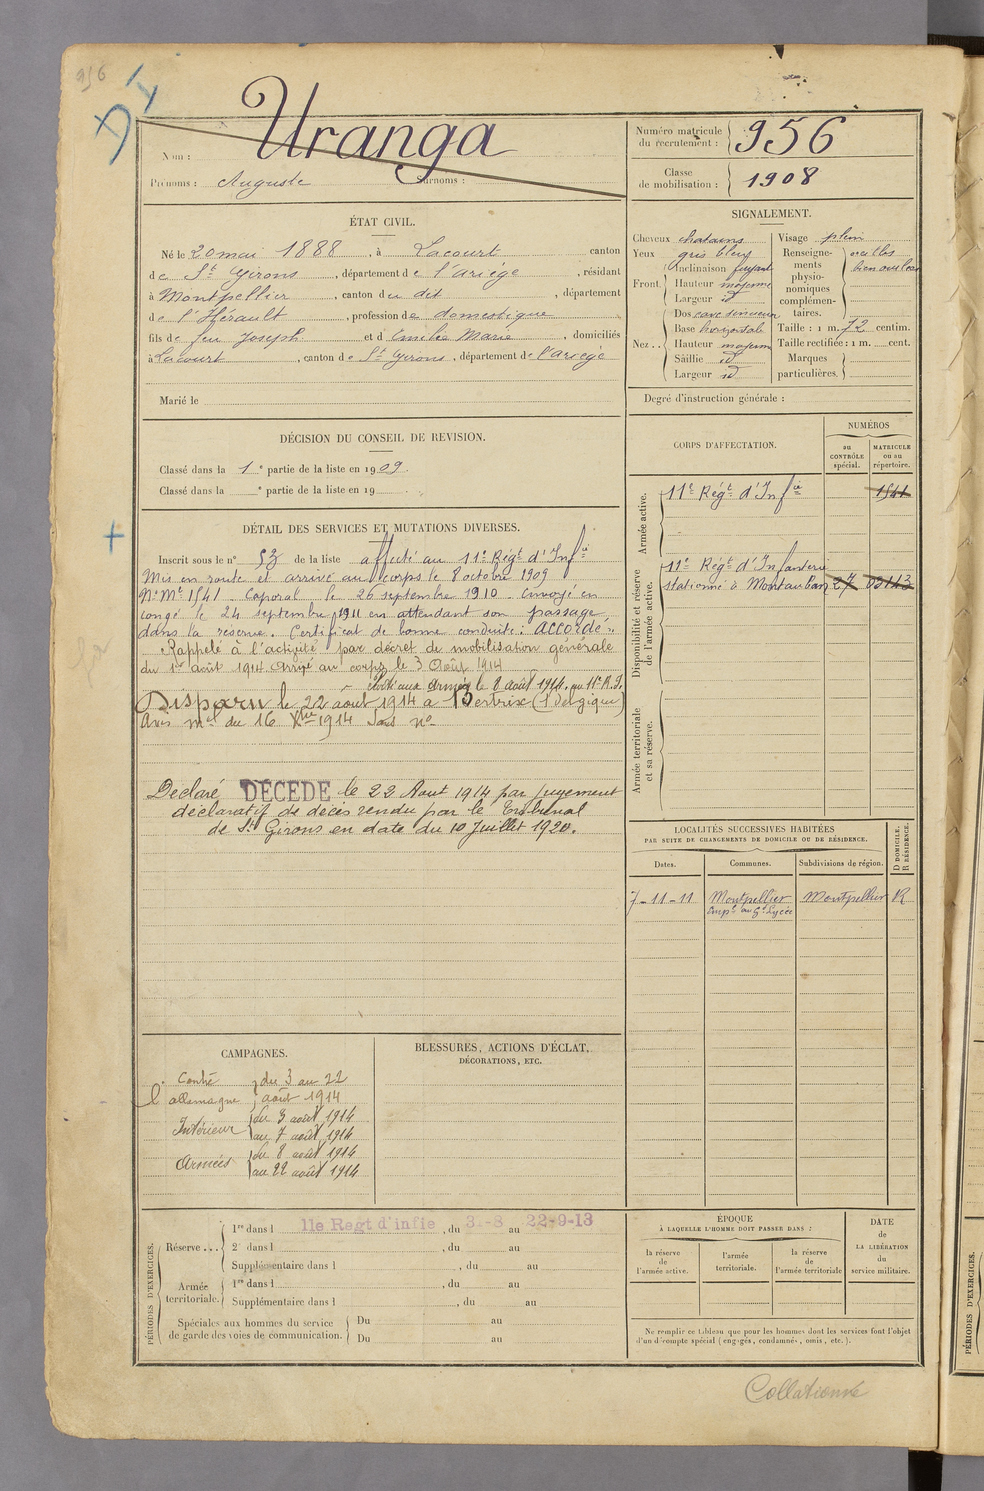 956
Uranga
Nom :
Prénoms : Auguste Surnoms :
Numéro matricule du recrutement : 956
Classe de mobilisation : 1908
ÉTAT CIVIL.
Né le 20 mai 1888, à Lacourt canton
de St Girons, département de l'ariège, résidant
à Montpellier, canton du dit, département
de l'Hérault, profession de domestique
fils de feu Joseph et d Emilie Marie, domiciliés
à Lacourt, canton de St Girons, département de l'ariège
Marié le
SIGNALEMENT.
Cheveux chatains
Yeux gris bleus
Front. Inclinaison fuyant
Hauteur moyenne
Largeur id
Nez.. Dos cave sinueux
Base horizontale
Hauteur moyenne
Saillie id
Largeur id
Visage plein
Renseignements physionomiques complémentaires. oreilles
Taille : 1 m. 72 centim.
Taille rectifiée : 1 m. cent.
Marques particulières.
Degré d'instruction générale :
DÉCISION DU CONSEIL DE REVISION.
Classé dans la 1e partie de la liste en 1909.
Classé dans la e partie de la liste en 19
CORPS D'AFFECTATION.
NUMÉROS
au CONTRÔLE spécial.
MATRICULE ou au répertoire.
Armée active.
11e Régt d'Infie 1541
Disponibilité et réserve de l'armée active.
11e Régt d'Infanterie
stationné à Montauban 27 02143
Armée territoriale et sa réserve.
DÉTAIL DES SERVICES ET MUTATIONS DIVERSES.
Inscrit sous le n° 53 de la liste affecté au 11e Régt d'Infie
Mis en route et arrivé au corps le 8 octobre 1909
N° Me 1541. Caporal le 26 septembre 1910. Envoyé en
congé le 24 septembre 1911 en attendant son passage
dans la réserve. Certificat de bonne conduite : ACCORDÉ.
Rappelé à l'activité par décret de mobilisation générale
du 1er août 1914 Arrivé au corps le 3 Août 1914
aux Armées le 8 août 1914. au 11e R.I.
Disparu le 22 aout 1914 à Bertrix (Belgique)
Avis mel du 16 Xbre 1914 Sans n°
Declaré DÉCÉDÉ le 22 Aout 1914 par jugement
déclaratif de décès rendu par le Tribunal
de St Girons en date du 10 Juillet 1920.
LOCALITÉS SUCCESSIVES HABITÉES
PAR SUITE DE CHANGEMENTS DE DOMICILE OU DE RÉSIDENCE.
Dates. Communes. Subdivisions de région. D DOMICILE. R RÉSIDENCE.
7-11-11 Montpellier Montpellier R
au Gd Lycée
CAMPAGNES.
Contre l'allemagne du 3 au 22 août 1914
Intérieur du 3 août 1914
au 7 août 1914
Armées du 8 août 1914
au 22 août 1914
BLESSURES, ACTIONS D'ÉCLAT,
DÉCORATIONS, ETC.
PÉRIODES D'EXERCICES.
Réserve...
1re dans l 11e Regt d'infie, du 31-8 au 22-9-13
2e dans l, du au
Supplémentaire dans l, du au
Armée territoriale.
1re dans l, du au
Supplémentaire dans l, du au
Spéciales aux hommes du service
de garde des voies de communication.
Du au
Du au
ÉPOQUE
À LAQUELLE L'HOMME DOIT PASSER DANS :
la réserve de l'armée active.
l'armée territoriale.
la réserve de l'armée territoriale
DATE de LA LIBÉRATION du service militaire.
Ne remplir ce tableau que pour les hommes dont les services font l'objet
d'un décompte spécial (engagés, condamnés, omis, etc.).
Collationné
PÉRIODES D'EXERCICES.